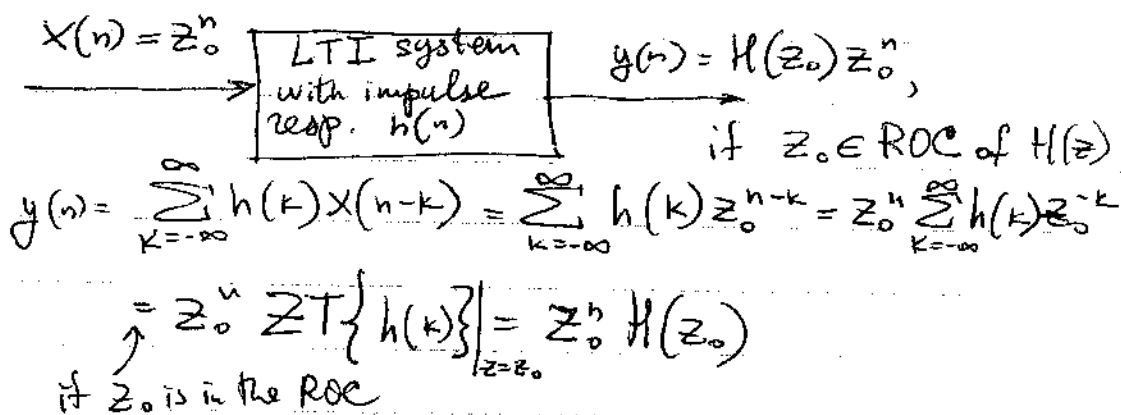 x(n) = z₀ⁿ
LTI system
with impulse
resp. h(n)
y(n) = H(z₀) z₀ⁿ,
if z₀ ∈ ROC of H(z)
y(n) = ∑_{k=-∞}^{∞} h(k) x(n-k) = ∑_{k=-∞}^{∞} h(k) z₀^{n-k} = z₀ⁿ ∑_{k=-∞}^{∞} h(k) z₀^{-k}
= z₀ⁿ ZT{h(k)}|_{z=z₀} = z₀ⁿ H(z₀)
if z₀ is in the ROC